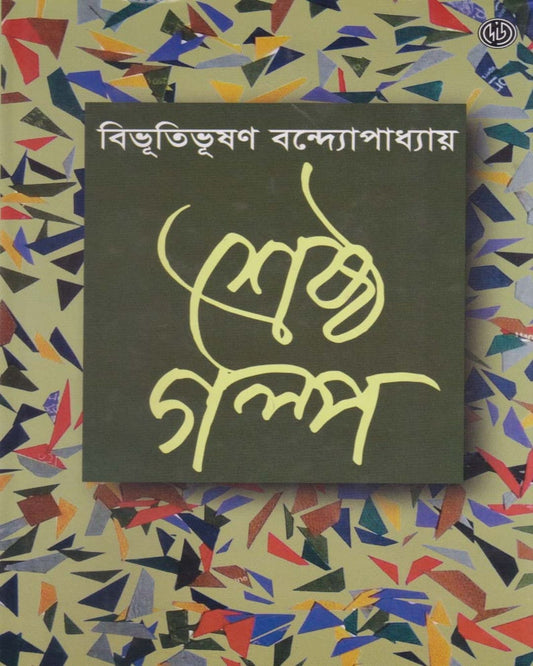 বিভূতিভূষণ বন্দ্যোপাধ্যায়
শ্রেষ্ঠ
গল্প